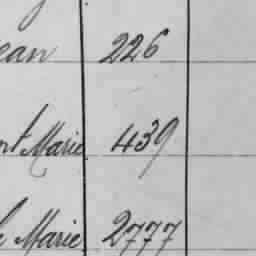 ean 226
ort Marie 439
Marie 2777